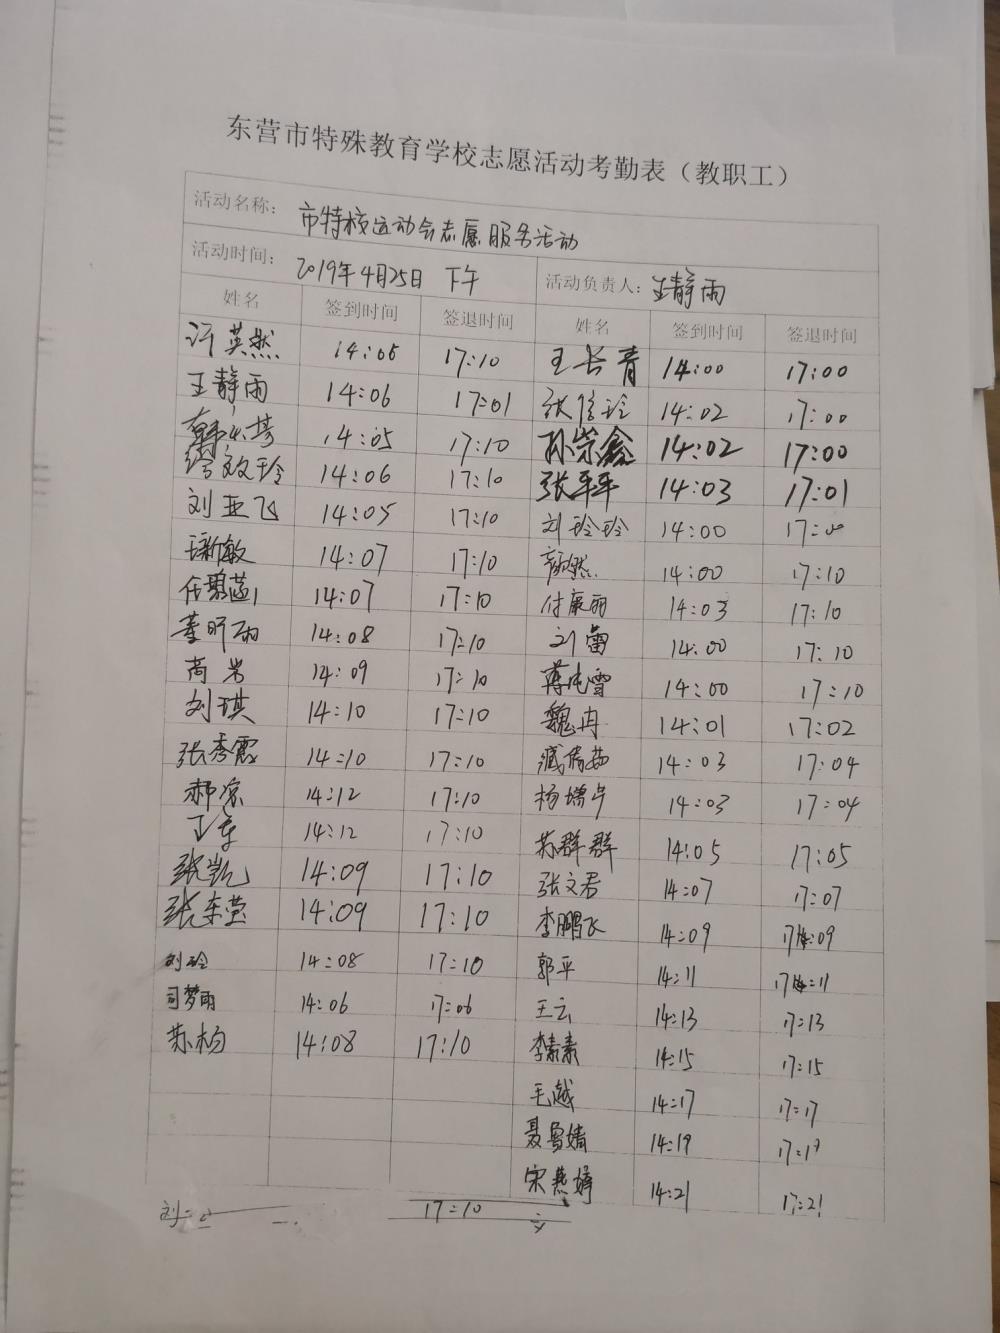 东营市特殊教育学校志愿活动考勤表（教职工）
活动名称： 市特校运动会志愿服务活动
活动时间： 2019年4月25日 下午 活动负责人： 王静雨
姓名 签到时间 签退时间 姓名 签到时间 签退时间
英然 14:05 17:10 王长青 14:00 17:00
王静雨 14:06 17:01 张 玲 14:02 17:00
韩 14:05 17:10 孙崇鑫 14:02 17:00
效玲 14:06 17:10 张平平 14:03 17:01
刘亚飞 14:05 17:10 刘玲玲 14:00 17:00
敏 14:07 17:10 然 14:00 17:10
任 14:07 17:10 付康丽 14:03 17:10
董昕雨 14:08 17:10 刘蕾 14:00 17:10
商 14:09 17:10 蒋 雪 14:00 17:10
刘琪 14:10 17:10 魏冉 14:01 17:02
张秀霞 14:10 17:10 臧倩茹 14:03 17:04
郝 14:12 17:10 杨 14:03 17:04
14:12 17:10 苏群群 14:05 17:05
张凯 14:09 17:10 张文君 14:07 17:07
张东莹 14:09 17:10 李鹏飞 14:09 17:09
刘玲 14:08 17:10 郭平 14:11 17:11
司梦雨 14:06 17:06 王云 14:13 17:13
苏杨 14:08 17:10 李素素 14:15 17:15
毛越 14:17 17:17
聂鲁婧 14:19 17:19
宋燕婷 14:21 17:21
刘 17:10